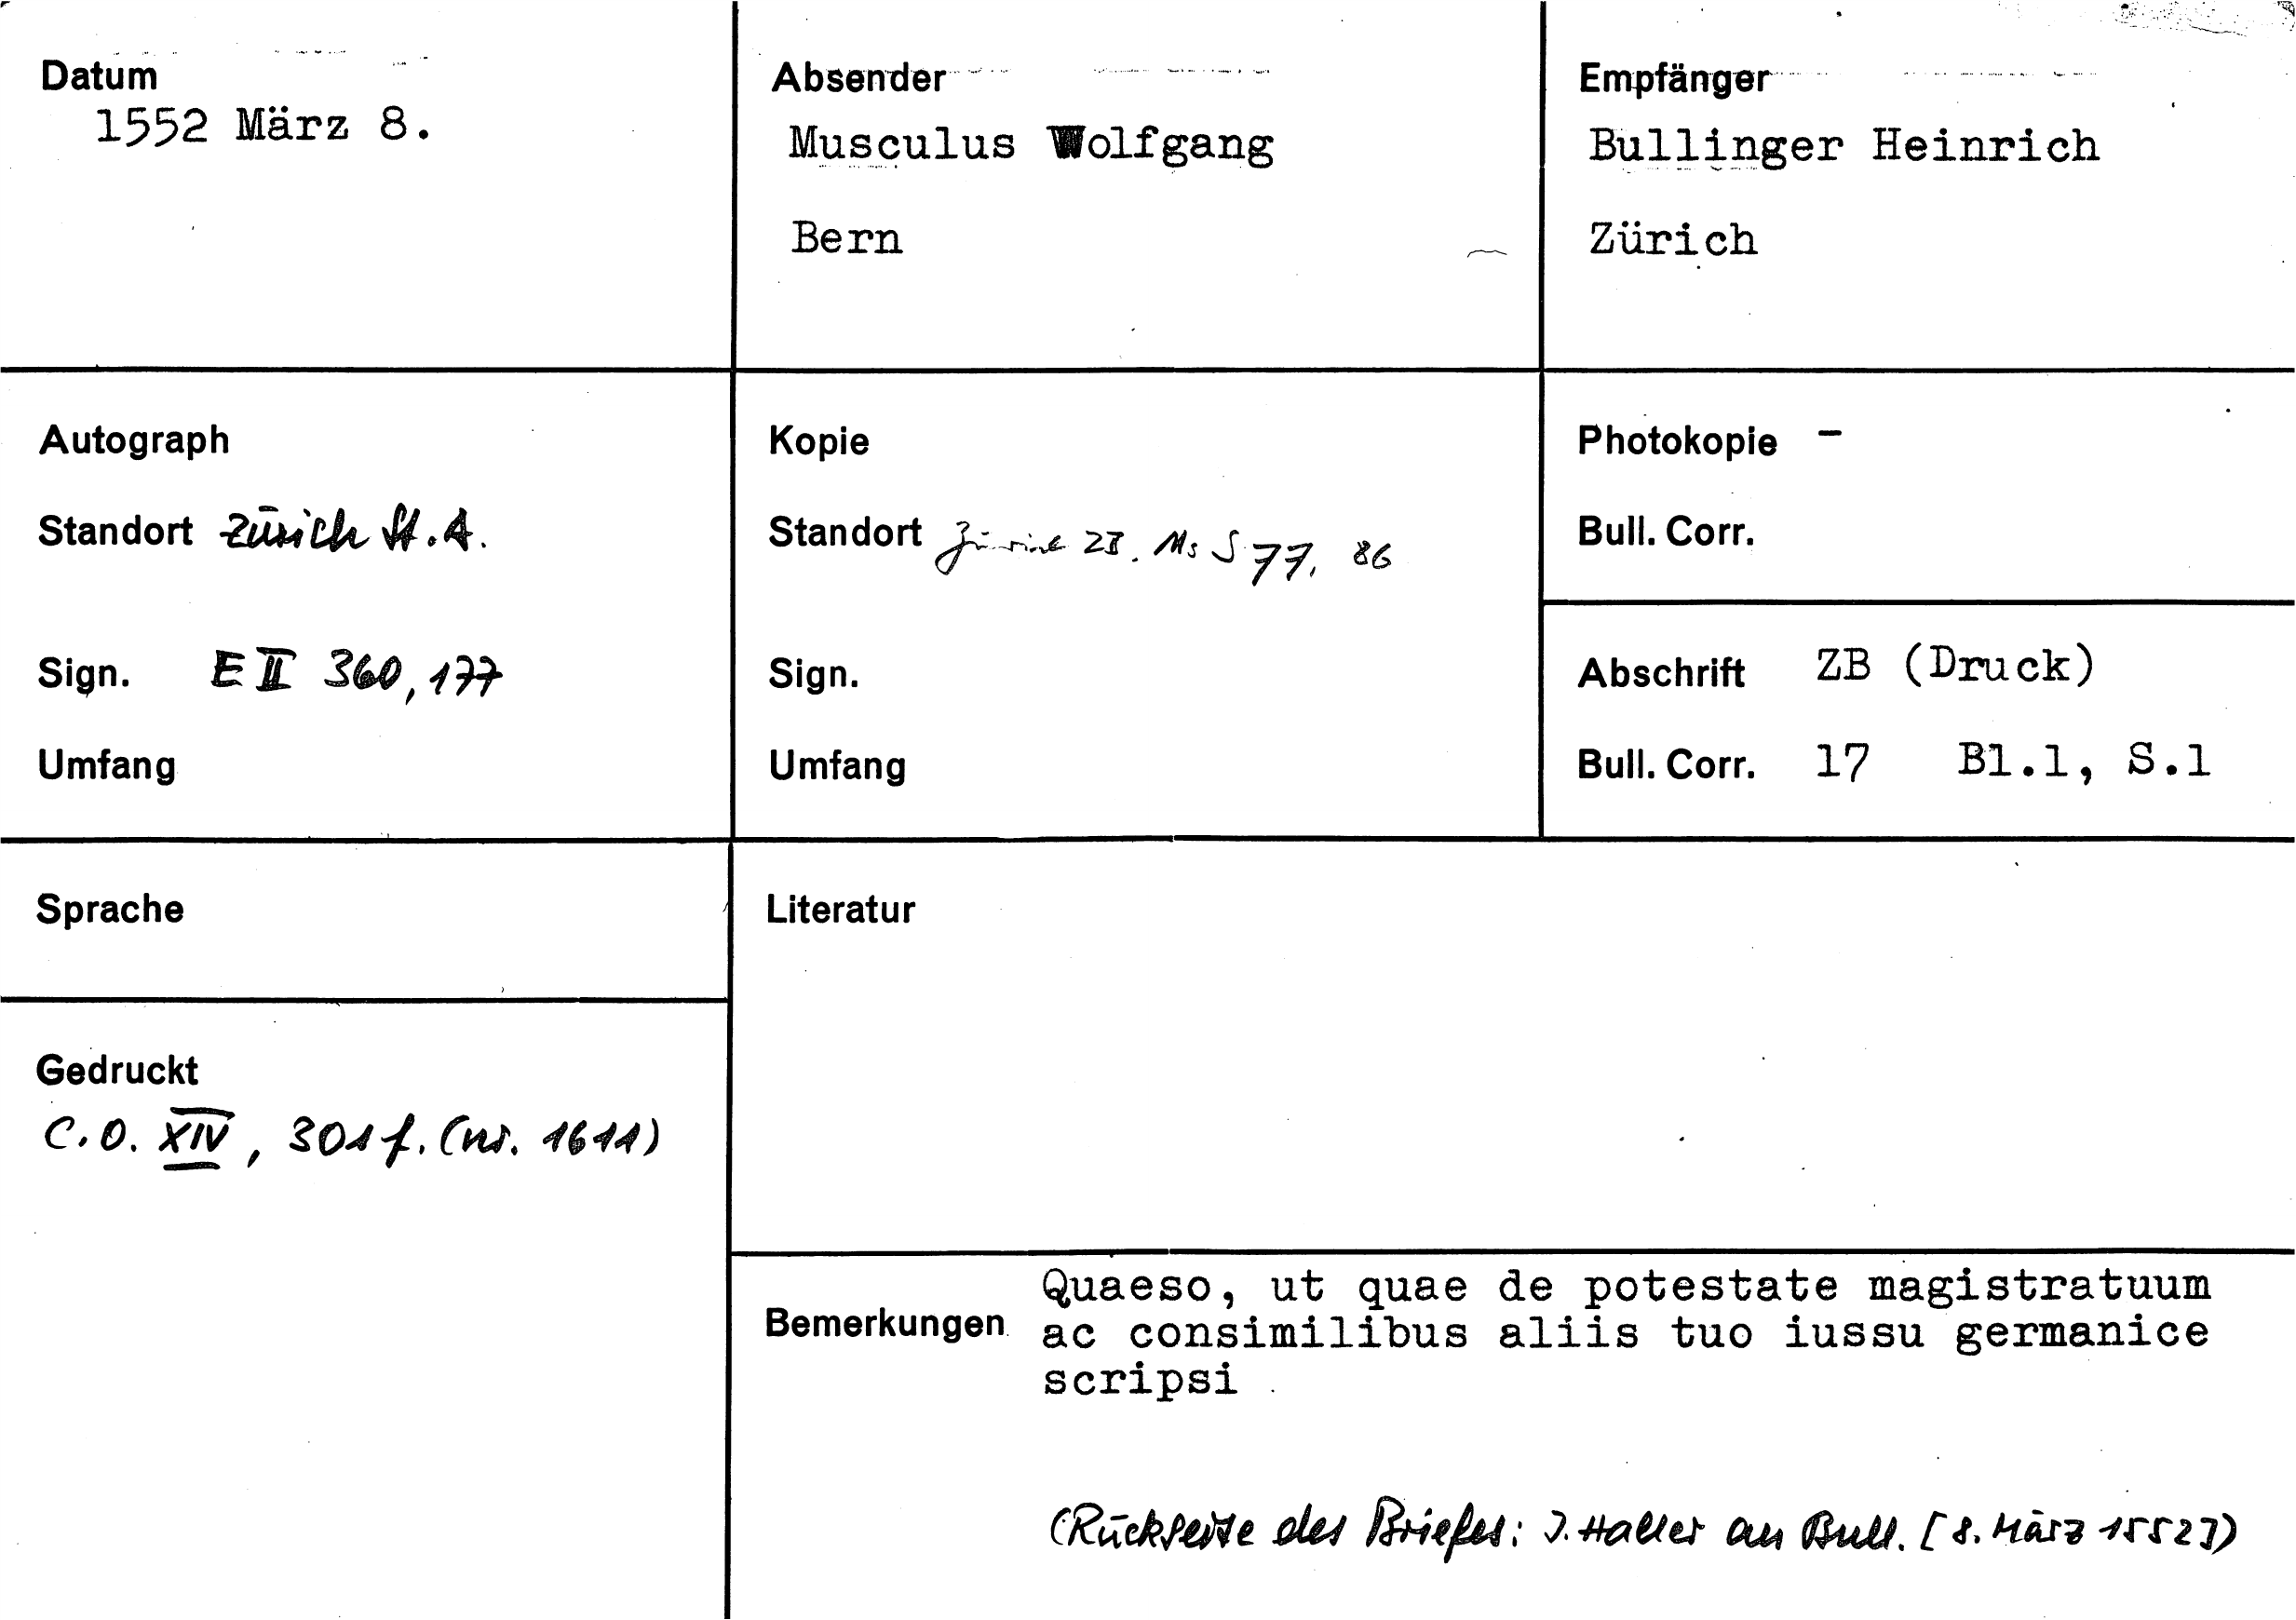 Datum
1552 März 8.
Absender
Musculus Wolfgang
Bern
Empfänger
Bullinger Heinrich
Zürich
Autograph
Standort Zürich St.A.
Sign. E II 360, 177
Umfang
Kopie
Standort Zürich ZB. Ms S 77, 86
Sign.
Umfang
Photokopie -
Bull. Corr.
Abschrift ZB (Druck)
Bull. Corr. 17 Bl.1, S.1
Sprache
Gedruckt
C.O. XIV, 301f. (nr. 1611)
Literatur
Bemerkungen
Quaeso, ut quae de potestate magistratuum
ac consimilibus aliis tuo iussu germanice
scripsi
(Rückseite des Briefes: J. Haller an Bull. [8. März 1552])